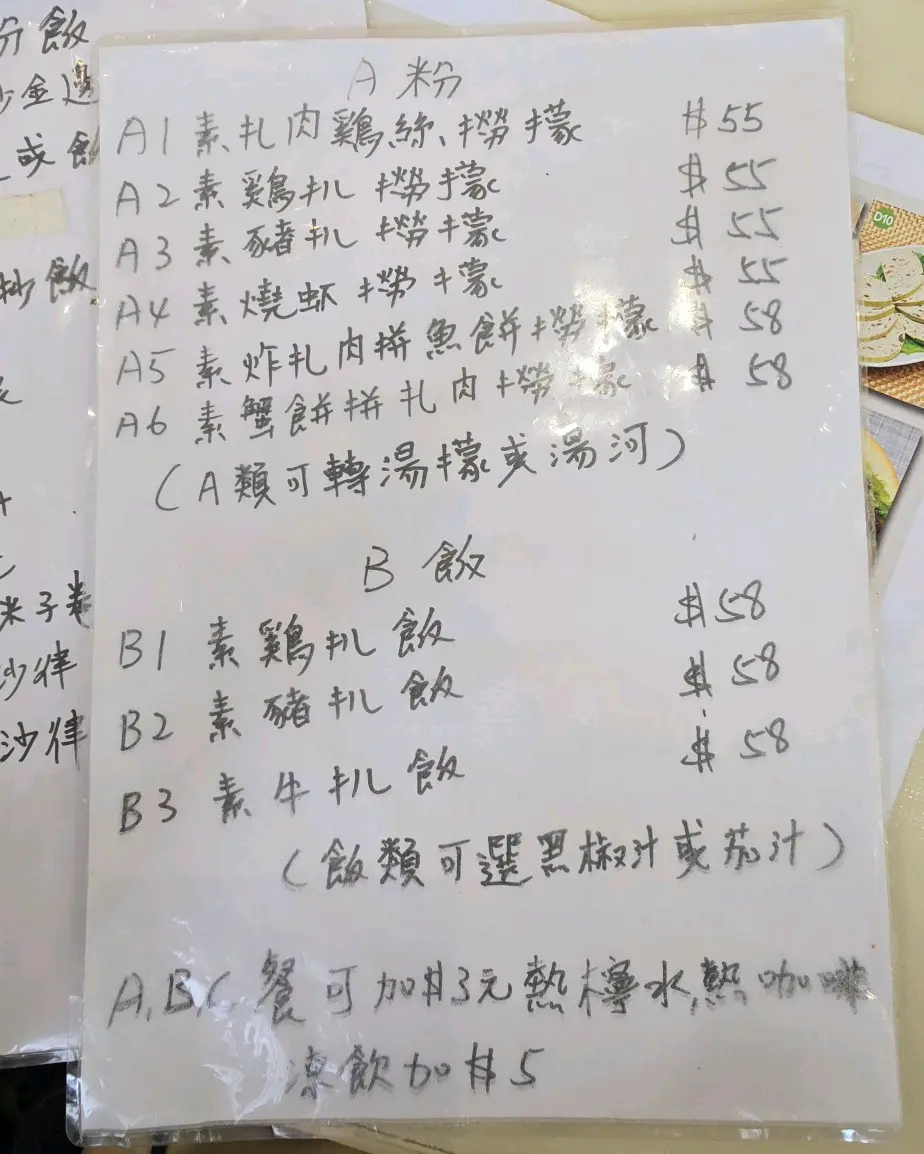 A 粉
A1 素扎肉鷄絲撈檬 $55
A2 素鷄扒撈檬 $55
A3 素豬扒撈檬 $55
A4 素燒蝦撈檬 $55
A5 素炸扎肉拼魚餅撈檬 $58
A6 素蟹餅拼扎肉撈檬 $58
(A類可轉湯檬或湯河)
B 飯
B1 素鷄扒飯 $58
B2 素豬扒飯 $58
B3 素牛扒飯 $58
(飯類可選黑椒汁或茄汁)
A,B,C 餐可加$3元熱檸水,熱咖啡
凍飲加$5
飯
金邊
或
炒飯
米子卷
沙律
沙律
D10